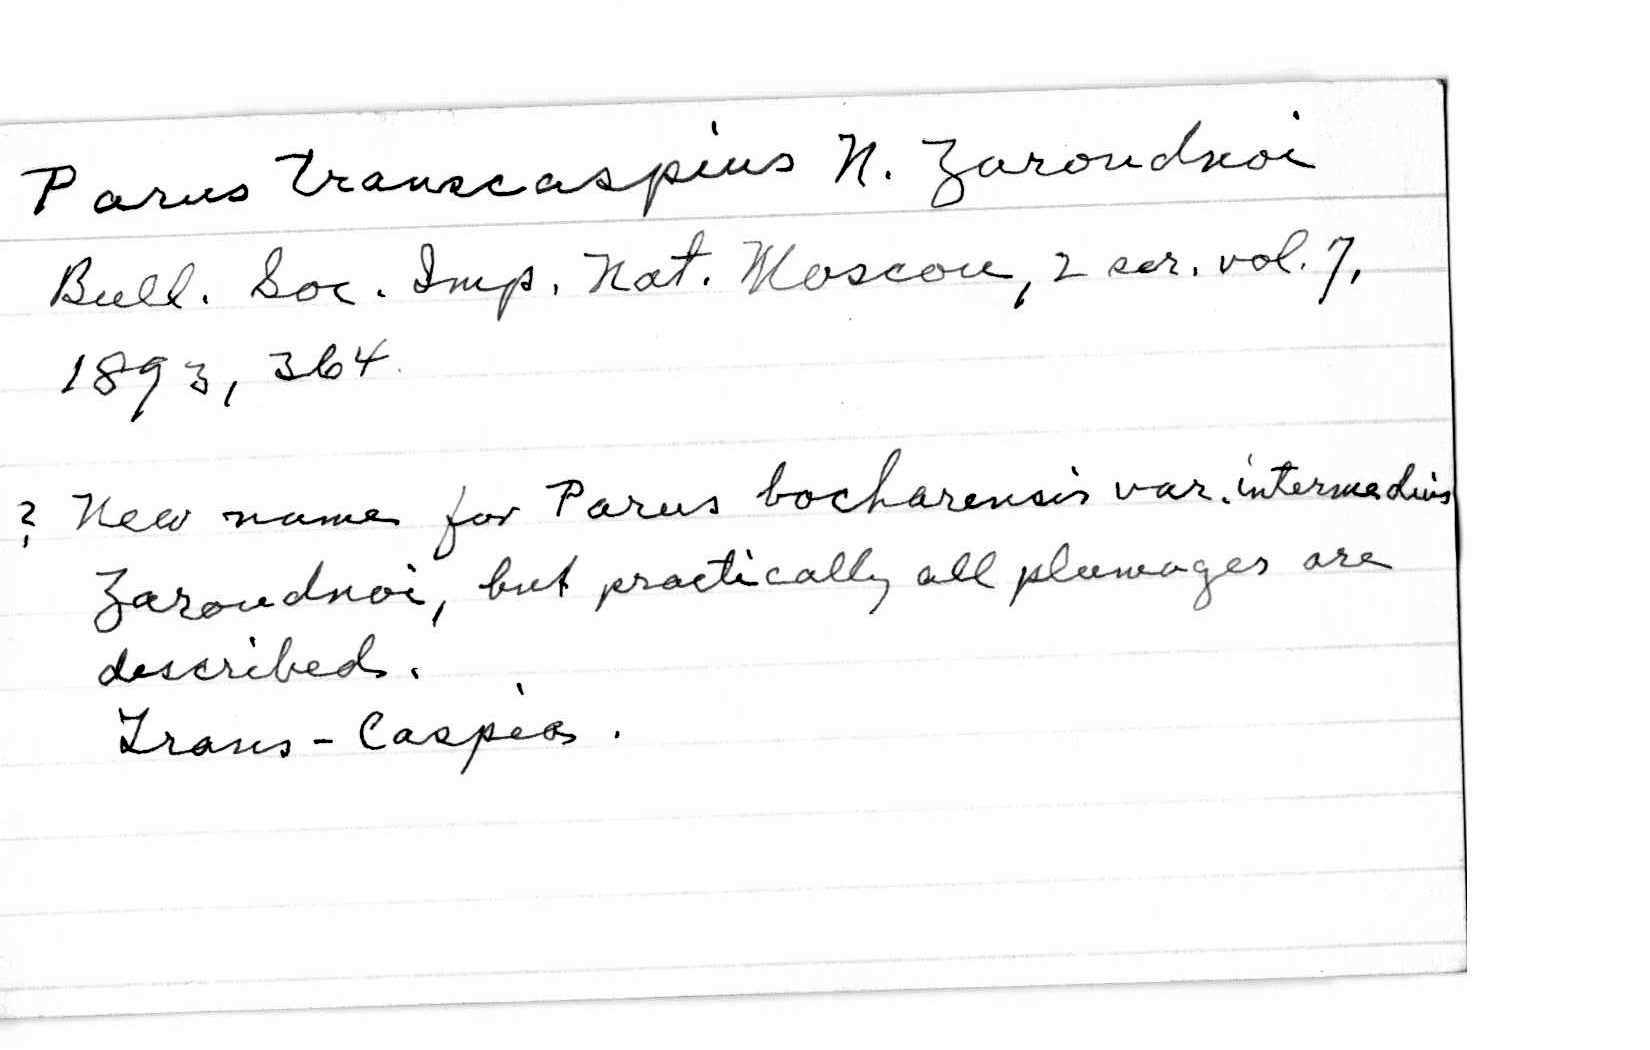 Parus transcaspius N. Zaroudnoi
Bull. Soc. Imp. Nat. Moscou, 2 ser. vol. 7,
1893, 364.
? New name for Parus bocharensis var. intermedius
Zaroudnoi, but practically all plumages are
described.
Trans-Caspia.